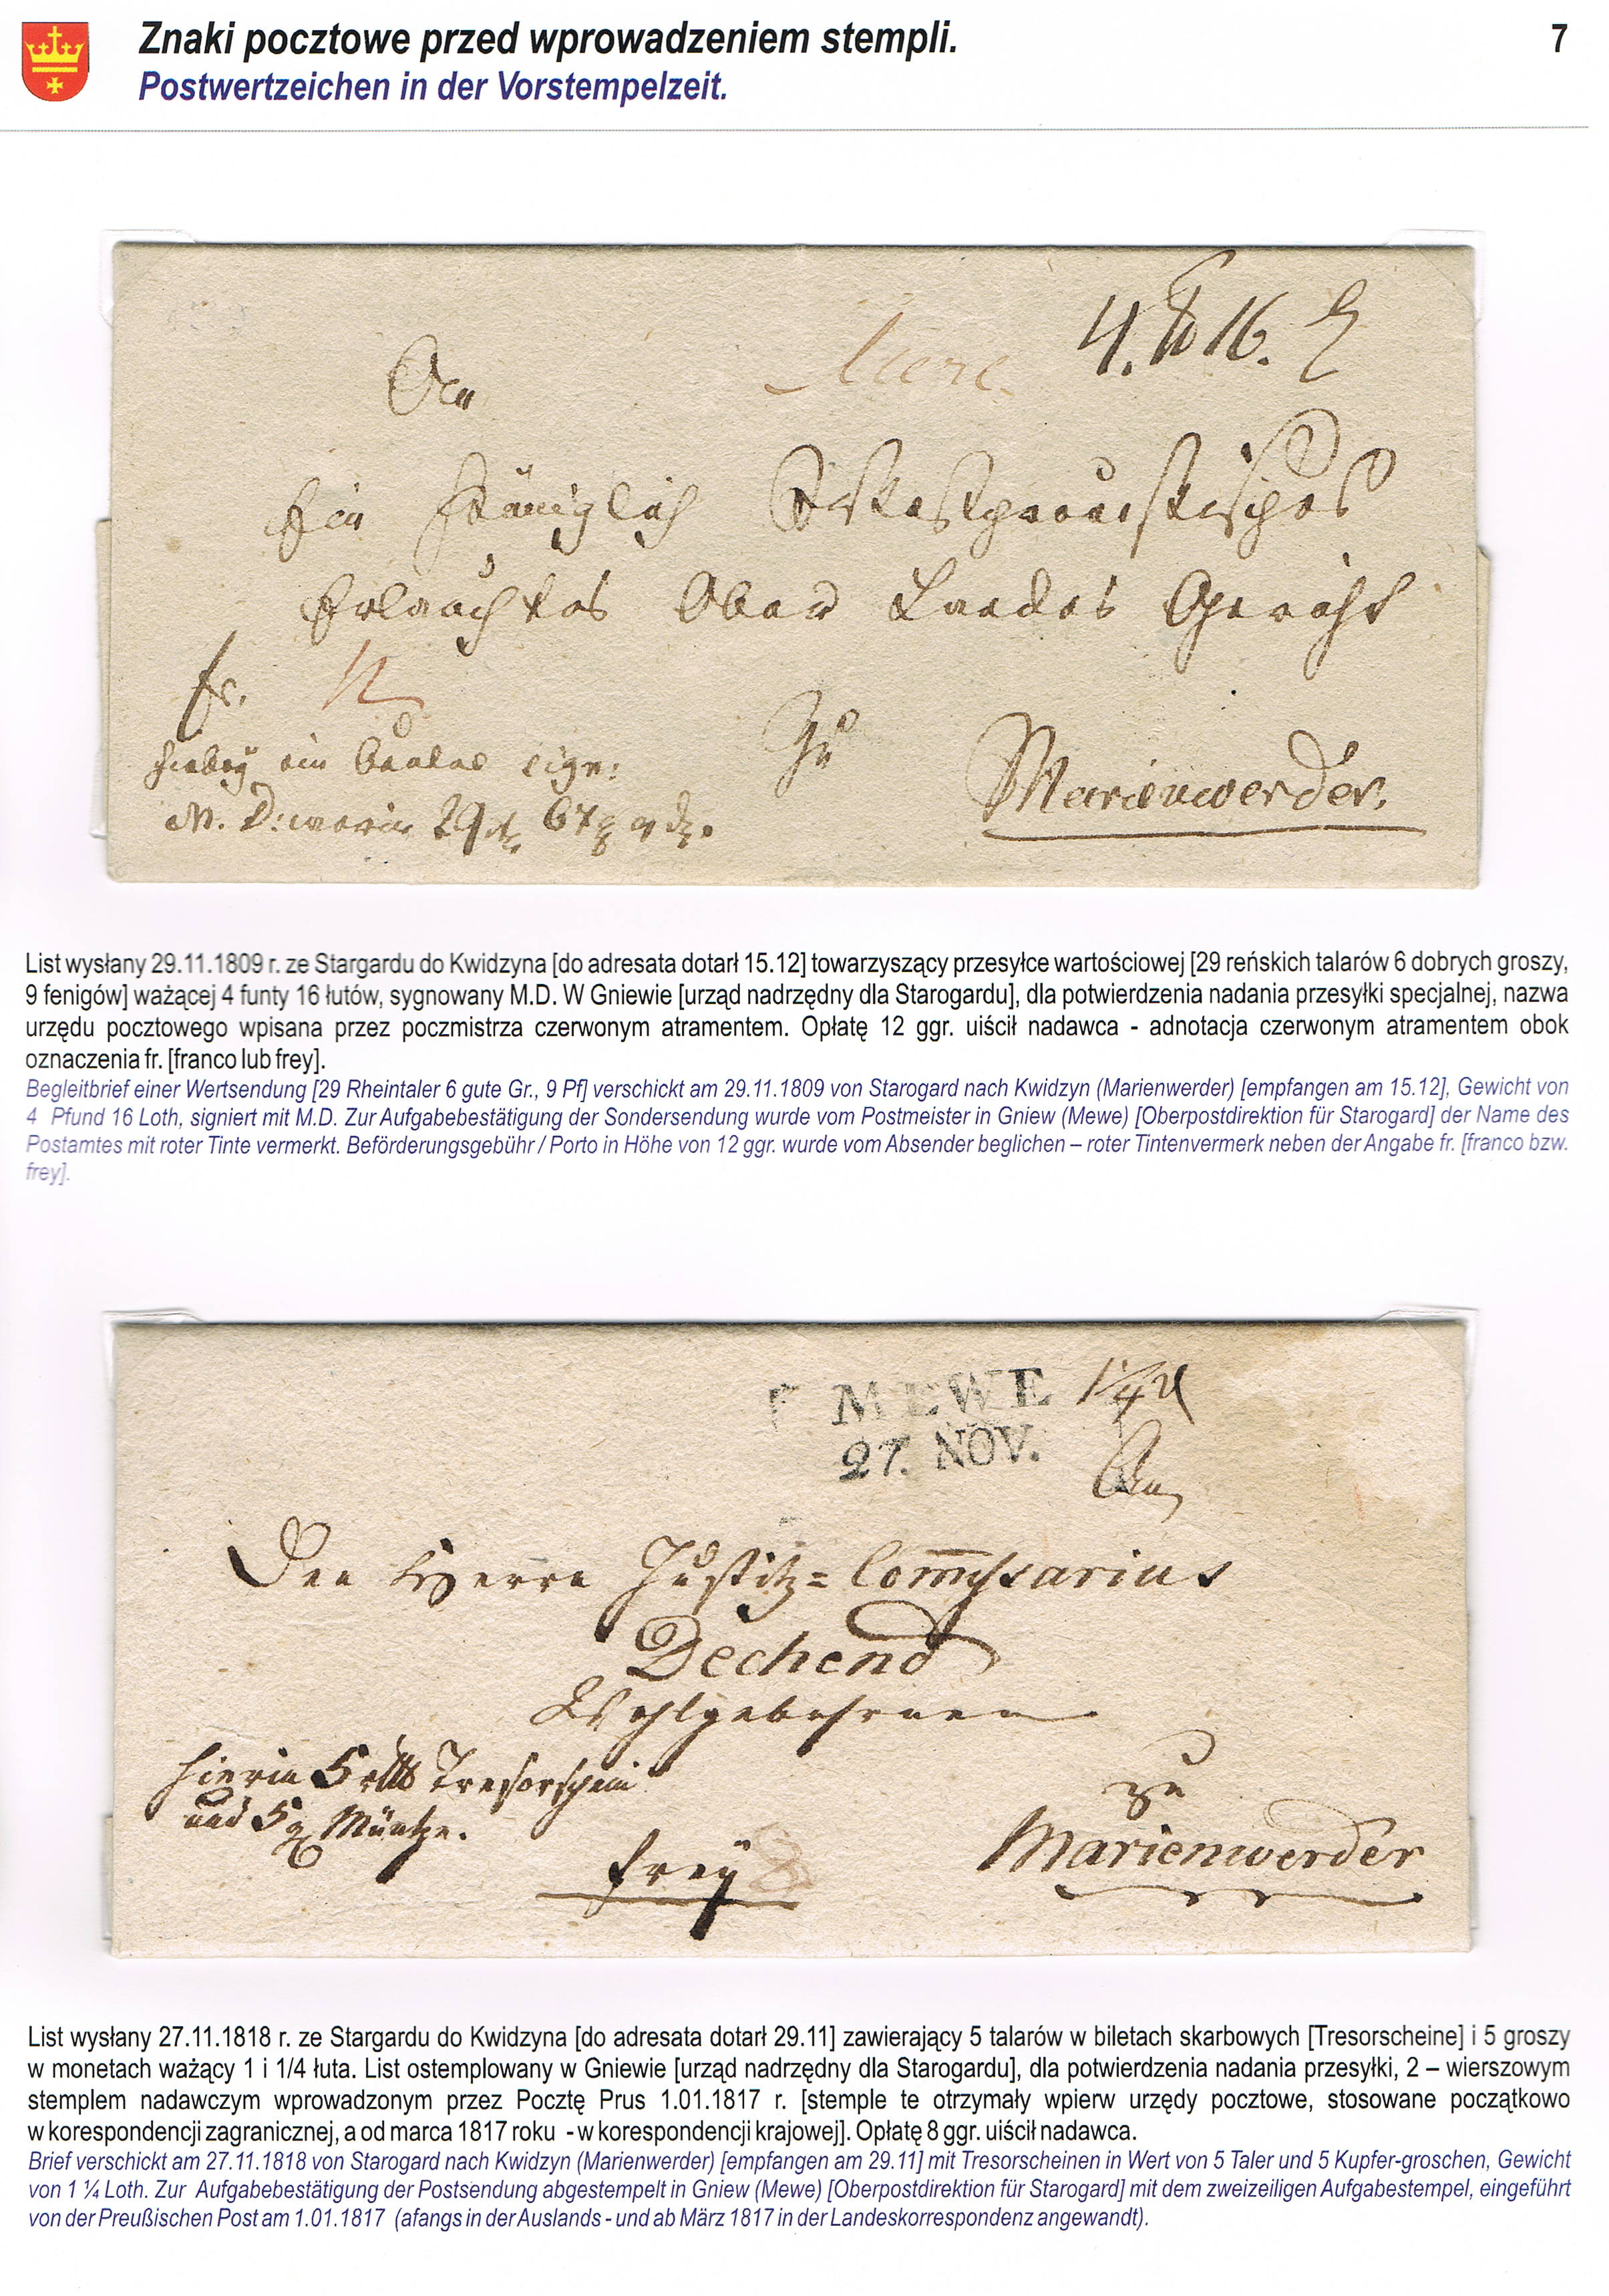 Znaki pocztowe przed wprowadzeniem stempli.
7
Postwertzeichen in der Vorstempelzeit.
4. ℔ 16.
An
Mewe.
Ein Königlich Westpreussisches
Erlauchtes Ober Landes Gericht
fr. 12
hiebey ein Beutel sign:
M. D: worin 29
Zu
Marienwerder.
List wysłany 29.11.1809 r. ze Stargardu do Kwidzyna [do adresata dotarł 15.12] towarzyszący przesyłce wartościowej [29 reńskich talarów 6 dobrych groszy,
9 fenigów] ważącej 4 funty 16 łutów, sygnowany M.D. W Gniewie [urząd nadrzędny dla Starogardu], dla potwierdzenia nadania przesyłki specjalnej, nazwa
urzędu pocztowego wpisana przez poczmistrza czerwonym atramentem. Opłatę 12 ggr. uiścił nadawca - adnotacja czerwonym atramentem obok
oznaczenia fr. [franco lub frey].
Begleitbrief einer Wertsendung [29 Rheintaler 6 gute Gr., 9 Pf] verschickt am 29.11.1809 von Starogard nach Kwidzyn (Marienwerder) [empfangen am 15.12], Gewicht von
4 Pfund 16 Loth, signiert mit M.D. Zur Aufgabebestätigung der Sondersendung wurde vom Postmeister in Gniew (Mewe) [Oberpostdirektion für Starogard] der Name des
Postamtes mit roter Tinte vermerkt. Beförderungsgebühr / Porto in Höhe von 12 ggr. wurde vom Absender beglichen – roter Tintenvermerk neben der Angabe fr. [franco bzw.
frey].
MEWE 1 1/4
27. NOV.
Den Herrn Justitz=Commissarius
Dechend
Wohlgebohrnen
hierin 5 rtlr Tresorschein
und 5 g Müntze.
zu
Marienwerder
frey 8
List wysłany 27.11.1818 r. ze Stargardu do Kwidzyna [do adresata dotarł 29.11] zawierający 5 talarów w biletach skarbowych [Tresorscheine] i 5 groszy
w monetach ważący 1 i 1/4 łuta. List ostemplowany w Gniewie [urząd nadrzędny dla Starogardu], dla potwierdzenia nadania przesyłki, 2 – wierszowym
stemplem nadawczym wprowadzonym przez Pocztę Prus 1.01.1817 r. [stemple te otrzymały wpierw urzędy pocztowe, stosowane początkowo
w korespondencji zagranicznej, a od marca 1817 roku - w korespondencji krajowej]. Opłatę 8 ggr. uiścił nadawca.
Brief verschickt am 27.11.1818 von Starogard nach Kwidzyn (Marienwerder) [empfangen am 29.11] mit Tresorscheinen in Wert von 5 Taler und 5 Kupfer-groschen, Gewicht
von 1 ¼ Loth. Zur Aufgabebestätigung der Postsendung abgestempelt in Gniew (Mewe) [Oberpostdirektion für Starogard] mit dem zweizeiligen Aufgabestempel, eingeführt
von der Preußischen Post am 1.01.1817 (afangs in der Auslands - und ab März 1817 in der Landeskorrespondenz angewandt).